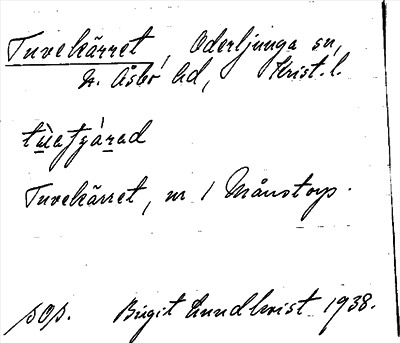 Tuvekärret, Oderljunga sn,
N. Åsbo hd, Krist. l.
Tuvekärret, nr 1 Månstorp.
sop. Birgit Lundkvist 1938.